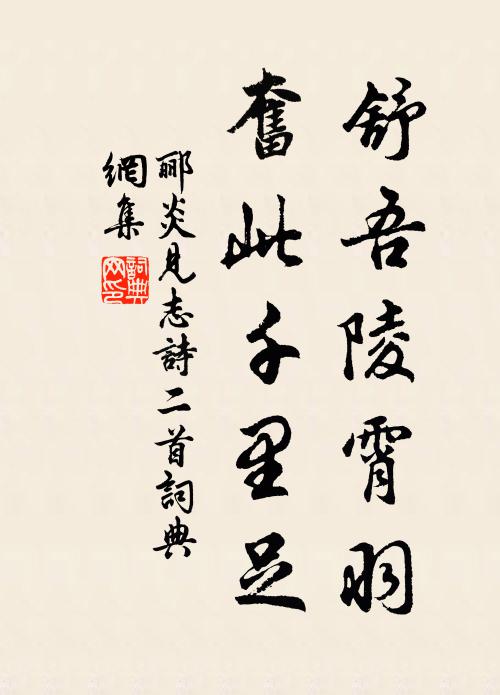 舒吾陵霄羽
奮此千里足
酈炎見志詩二首詞典
網集
詞典
网印